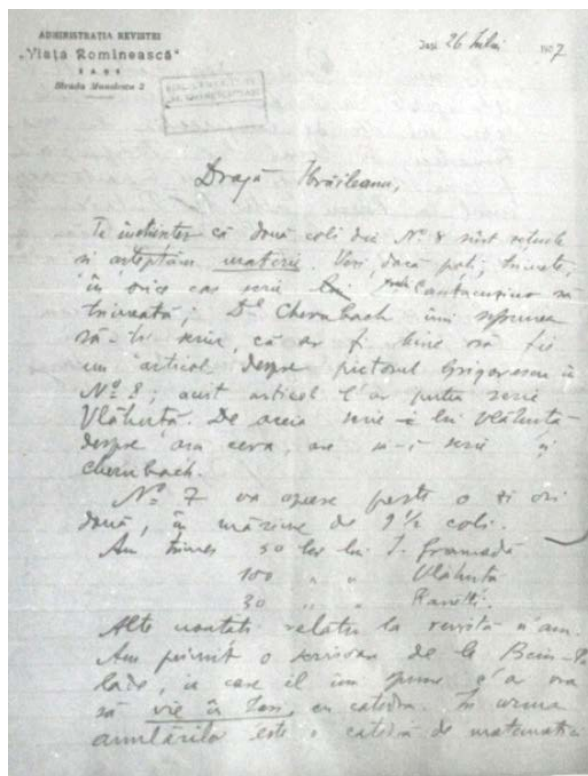 ADMINISTRAȚIA REVISTEI
„Viața Romînească"
IAȘI
Strada Muzelor 2
Iași 26 Iulie 1907
Dragă Ibrăileanu,
Te înștiințez că două coli din No. 8 sînt
și așteptăm materie. Vezi, dacă poți, trimete,
în orice caz scrie Cantacuzino să
trimeată; Dl Chernbach îmi spunea
să-ți scriu, că ar fi bine să fie
un articol despre pictorul Grigorescu în
No. 8; acest articol l'ar putea scrie
Vlăhuță. De aceia scrie-i lui Vlăhuță
despre asa ceva, are să-i scrie și
Chernbach.
No. 7 va apare peste o zi ori
două, în mărime de 9½ coli.
Am trimes 50 lei lui I. Gramadă
100 „ „ Vlăhuță
30 „ „ Ranetti.
Alte noutăți relativ la revistă n'am.
Am primit o scrisoare de la
în care îl îmi spune c'a vra
să vie în Iași, cu catedra. În urma
este o catedră de matematici